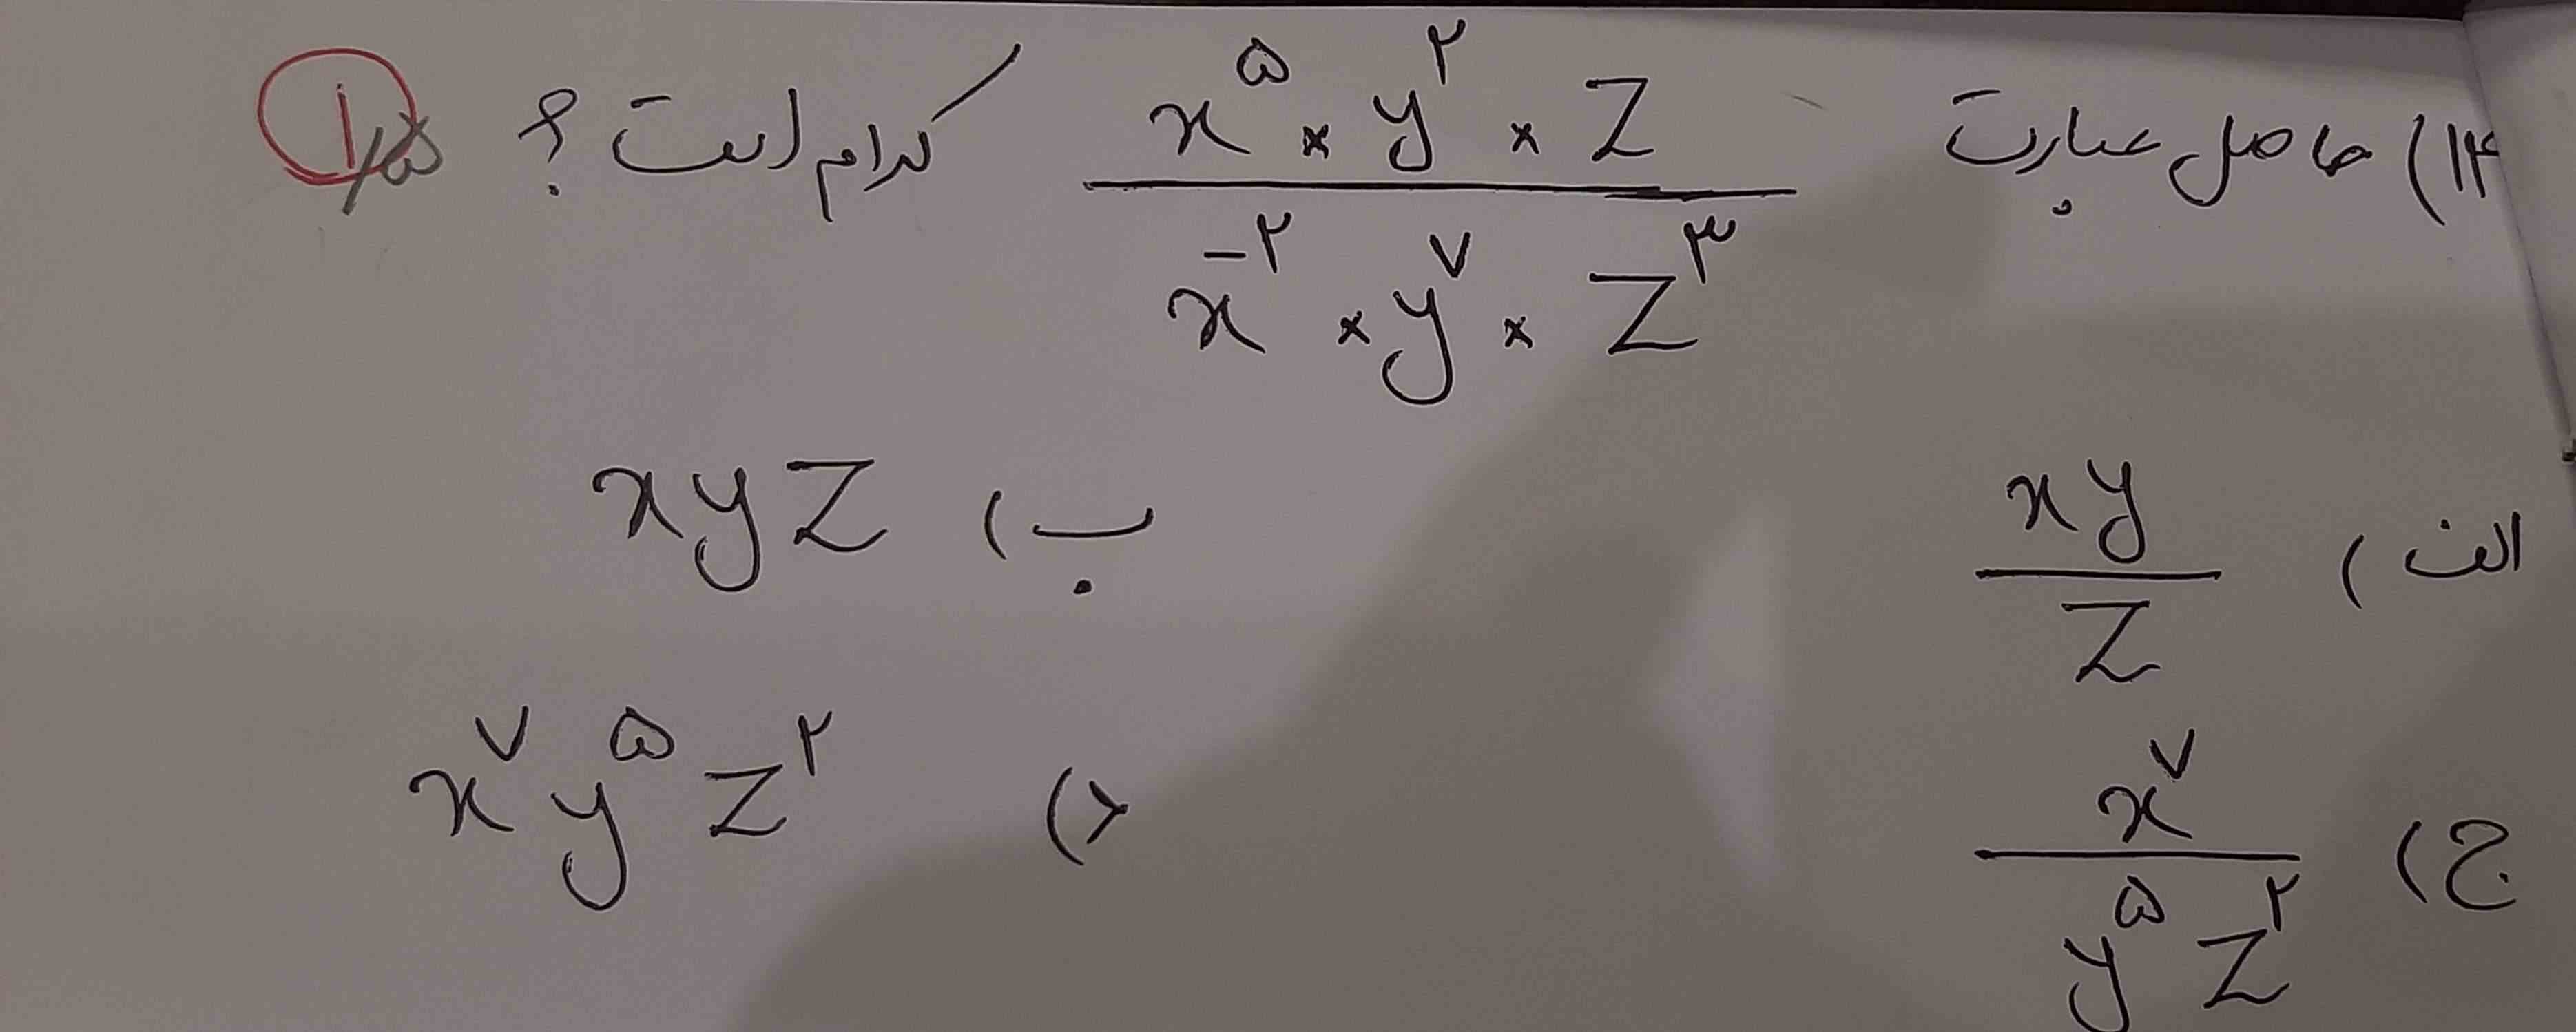 ۱۴) حاصل عبارت (x^۵ × y^۲ × z) / (x^-۲ × y^۷ × z^۳) کدام است ؟ ۱
الف) xy / z
ب) xyz
ج) x^۷ / y^۵ z^۲
د) x^۷ y^۵ z^۲